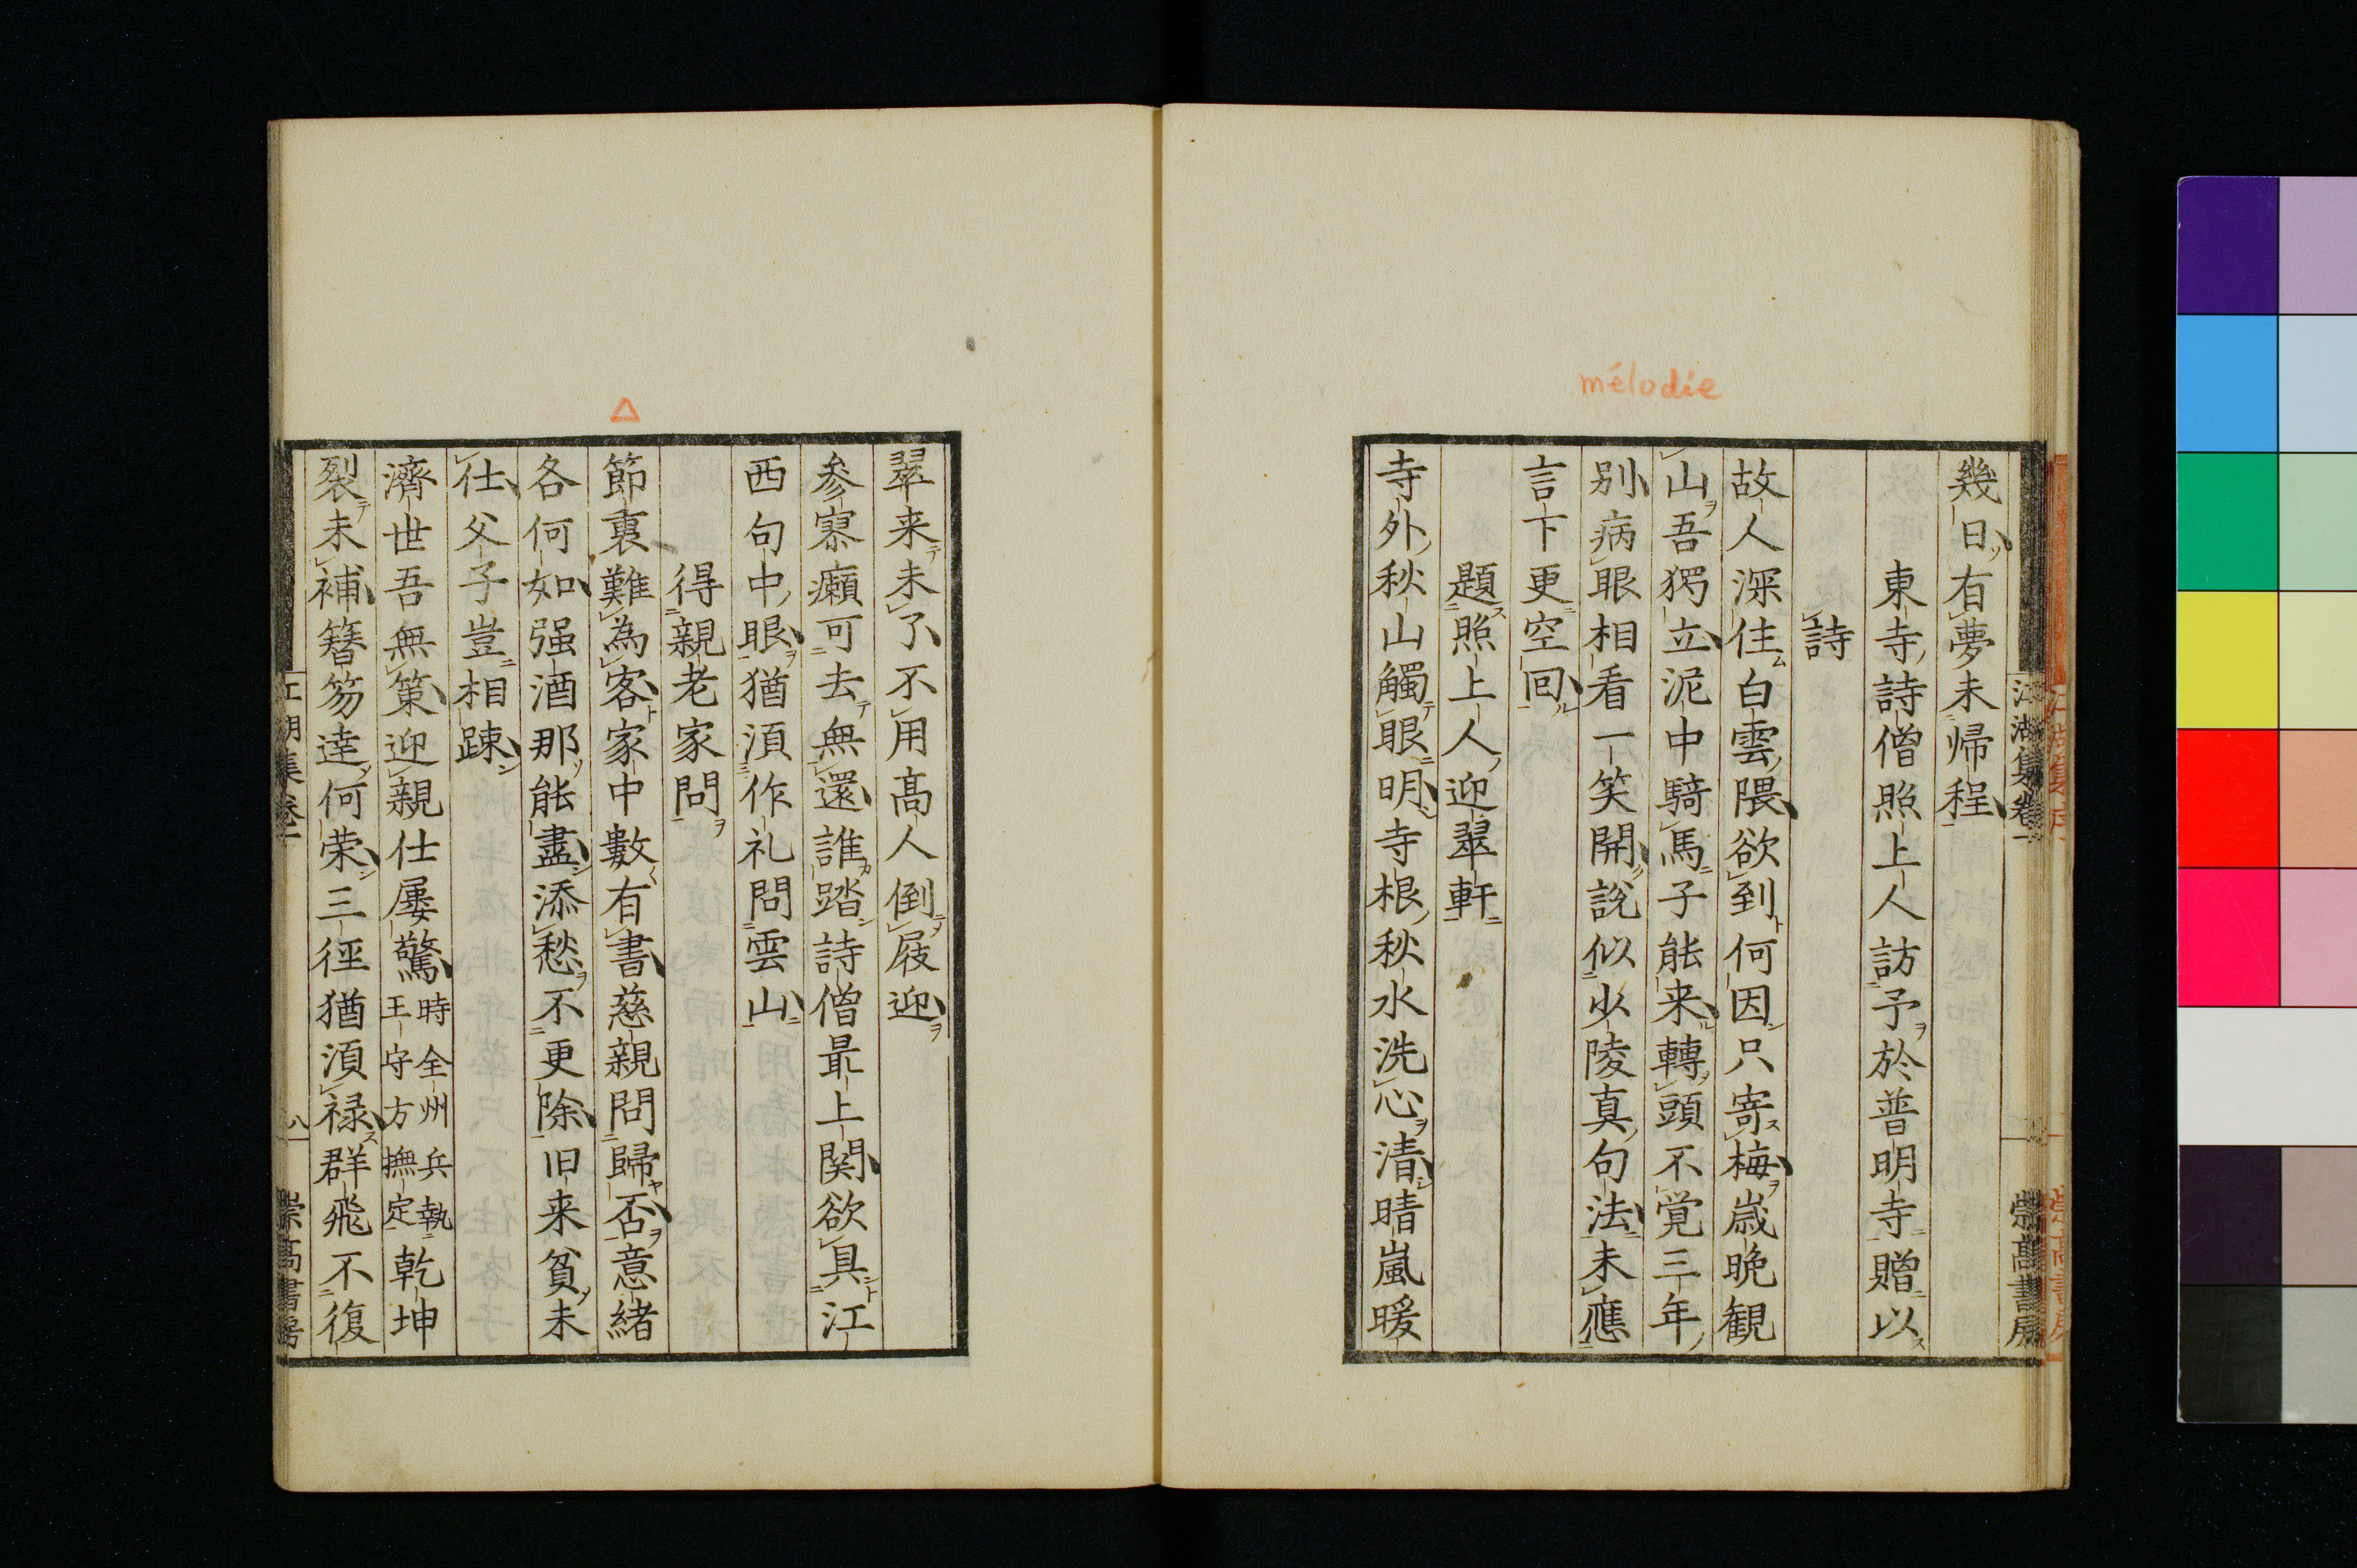 mélodie
江湖集卷一
崇高書房
幾日有夢未帰程
東寺詩僧照上人訪予於普明寺贈以
詩
故人深住白雲隈欲到何因只寄梅歳晩観
山吾獨立泥中騎馬子能来轉頭不覚三年
别病眼相看一笑開説似少陵真句法未應
言下更空回
題照上人迎翠軒
寺外秋山觸眼明寺根秋水洗心清晴嵐暖
△
翠来未了不用高人倒屐迎
参寥癩可去無還誰踏詩僧最上関欲具江
西句中眼猶湏作礼問雲山
得親老家問
節裏難為客家中數有書慈親問歸否意緒
各何如强酒那能盡添愁不更除旧来貧未
仕父子豈相踈
濟世吾無策迎親仕屢驚時全州兵執王守方撫定乾坤
裂未補簪笏逹何荣三徑猶湏禄群飛不復
江湖集卷一
八
崇高書房